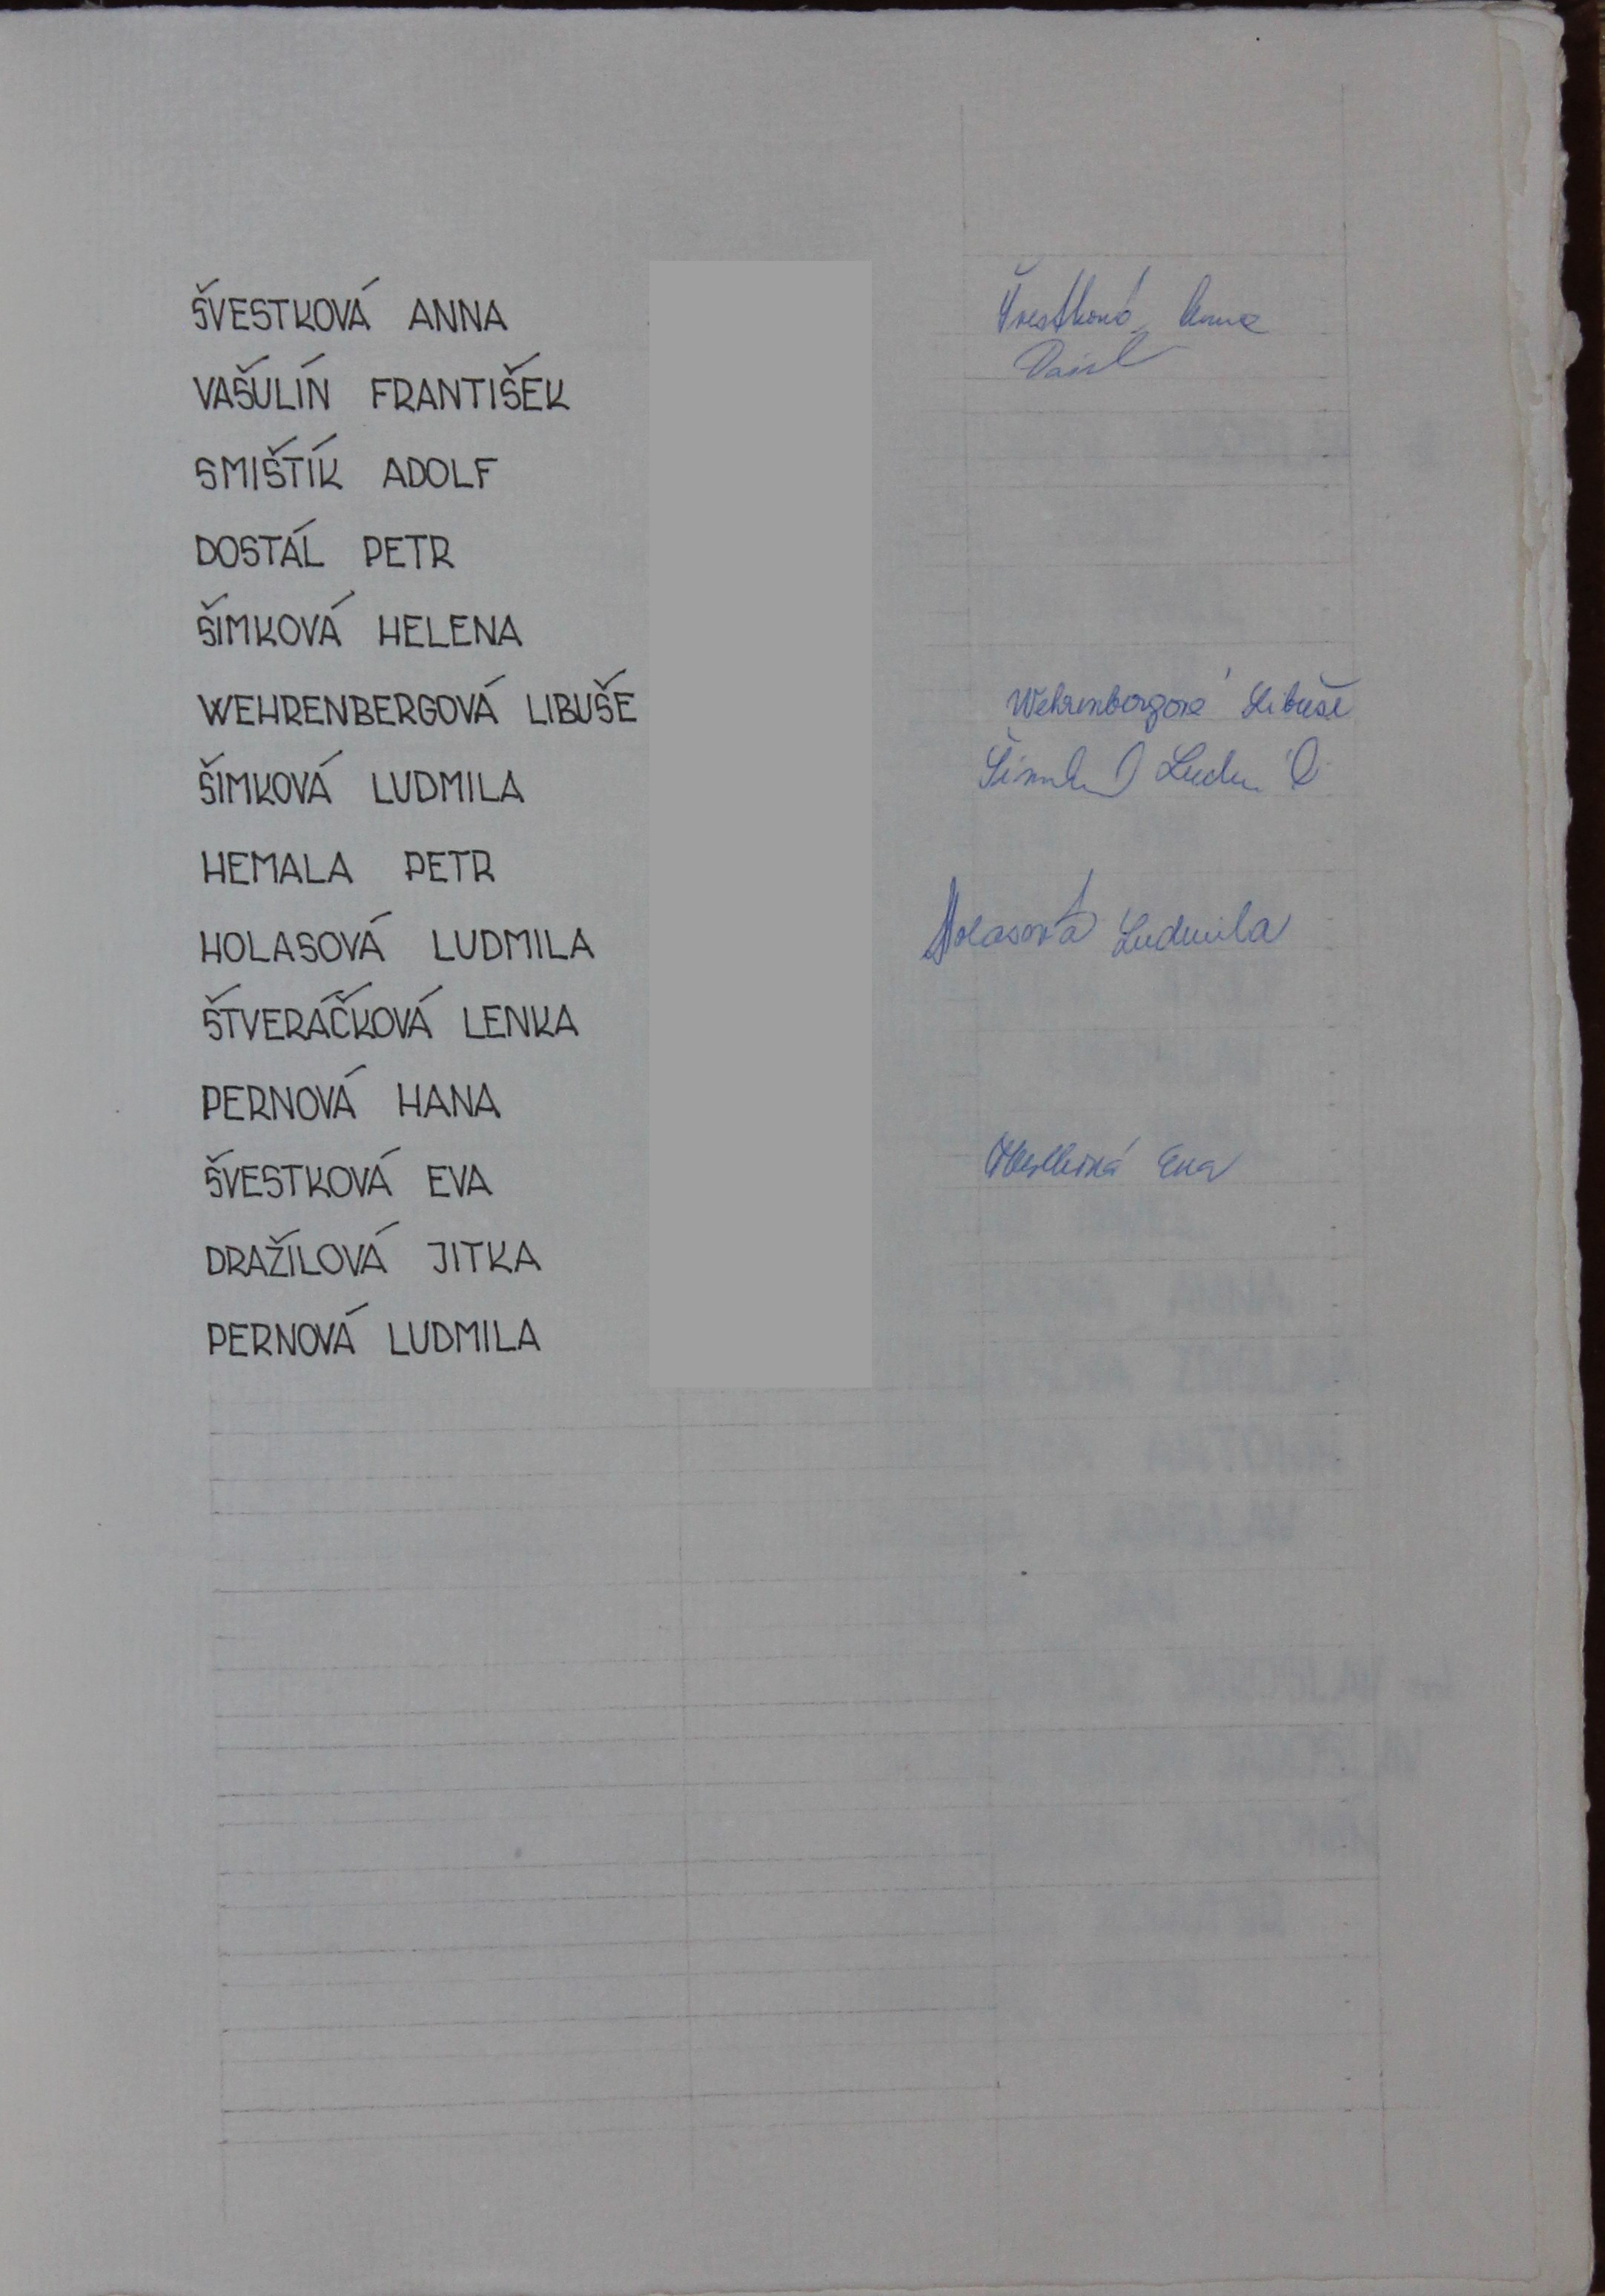 ŠVESTKOVÁ ANNA Švestková Anna
VAŠULÍN FRANTIŠEK
SMIŠTÍK ADOLF
DOSTÁL PETR
ŠIMKOVÁ HELENA
WEHRENBERGOVÁ LIBUŠE Wehrenbergová Libuše
ŠIMKOVÁ LUDMILA
HEMALA PETR
HOLASOVÁ LUDMILA Holasová Ludmila
ŠTVERÁČKOVÁ LENKA
PERNOVÁ HANA
ŠVESTKOVÁ EVA Švestková Eva
DRAŽÍLOVÁ JITKA
PERNOVÁ LUDMILA